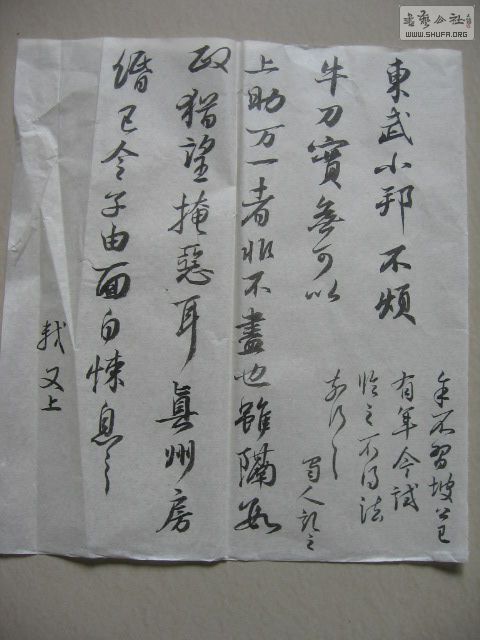 書藝公社
WWW.SHUFA.ORG
東武小邦不煩
牛刀實無可以
上助万一者非不盡也雖隔數
政猶望掩惡耳真州房
緡已令子由面白悚息〻
軾又上
余不習坡公已
有年今試
臨之不得法
奈何〻
蜀人記之